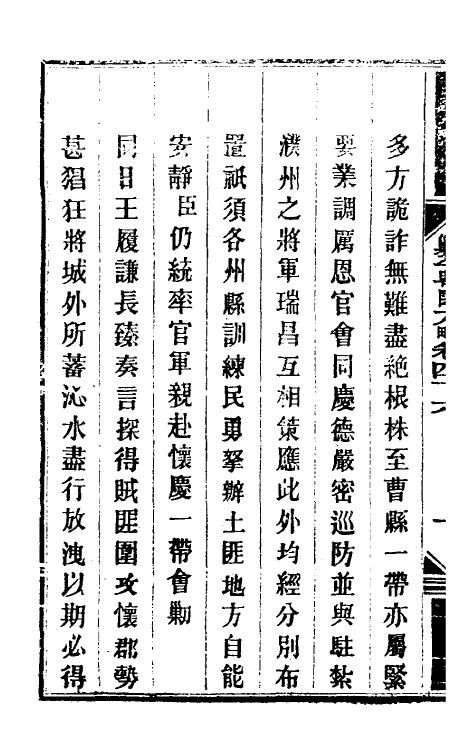 多方詭詐無難盡絕根株至曹縣一帶亦屬緊
要業調厲恩官會同慶德嚴密巡防並與駐紮
濮州之將軍瑞昌互相策應此外均經分別布
置祇須各州縣訓練民勇拏辦土匪地方自能
安靜臣仍統率官軍親赴懷慶一帶會勦
同日王履謙長臻奏言探得賊匪圍攻懷郡勢
甚猖狂將城外所蓄沁水盡行放洩以期必得